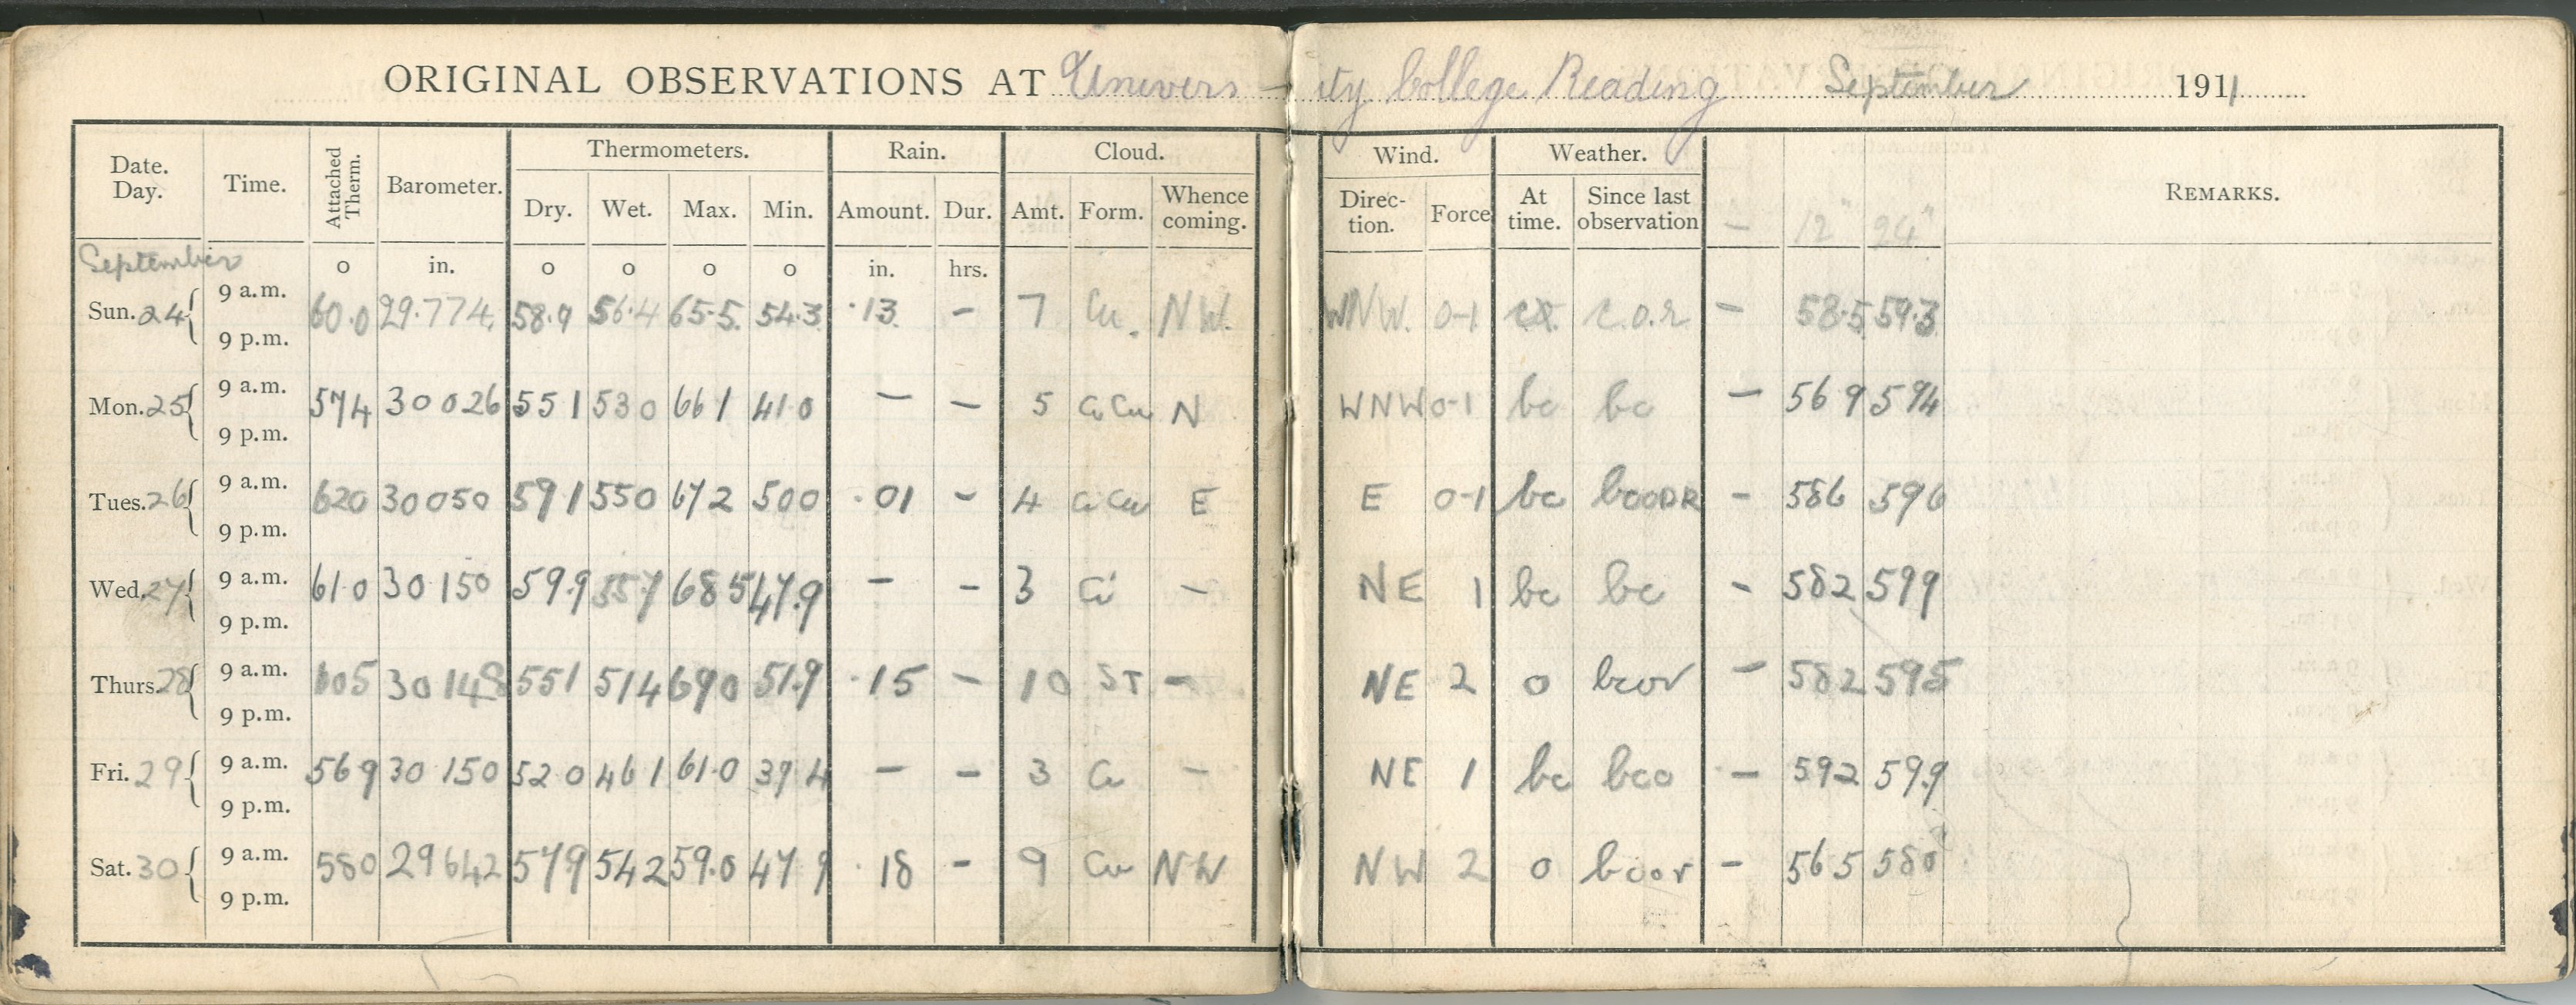 ORIGINAL OBSERVATIONS AT University College Reading September 1911
Date. Day. Time. Attached Therm. Barometer. Thermometers. Rain. Cloud. Wind. Weather. REMARKS.
Dry. Wet. Max. Min. Amount. Dur. Amt. Form. Whence coming. Direc- tion. Force At time. Since last observation - 12" 24"
September o in. o o o o in. hrs.
Sun. 24 9 a.m. 60.0 29.774 58.9 56.4 65.5 54.3 .13 - 7 Cu. NW. WNW. 0-1 c.o.r - 58.5 59.3
9 p.m.
Mon. 25 9 a.m. 574 30026 551 530 661 41.0 - - 5 CiCu N WNW 0-1 bc bc - 569 594
9 p.m.
Tues. 26 9 a.m. 620 30050 591 550 672 500 .01 - 4 CiCu E E 0-1 bc - 586 596
9 p.m.
Wed. 27 9 a.m. 61.0 30150 59.9 557 685 47.9 - - 3 Ci - NE 1 bc bc - 582 599
9 p.m.
Thurs. 28 9 a.m. 605 30148 551 514 690 51.9 .15 - 10 ST - NE 2 o bcor - 582 595
9 p.m.
Fri. 29 9 a.m. 569 30150 520 461 61.0 394 - - 3 Cu - NE 1 bc bco - 592 59.9
9 p.m.
Sat. 30 9 a.m. 580 29642 579 542 59.0 479 .18 - 9 Cu NW NW 2 o bcor - 565 580
9 p.m.